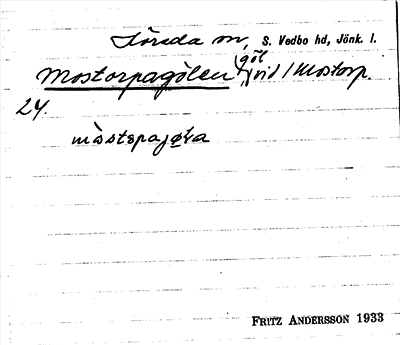 Lörda sn, S. Vedbo hd, Jönk. l.
Mostorpagölen (göl) vid / Mostorp.
24.
måstspajøḷa
FRITZ ANDERSSON 1933